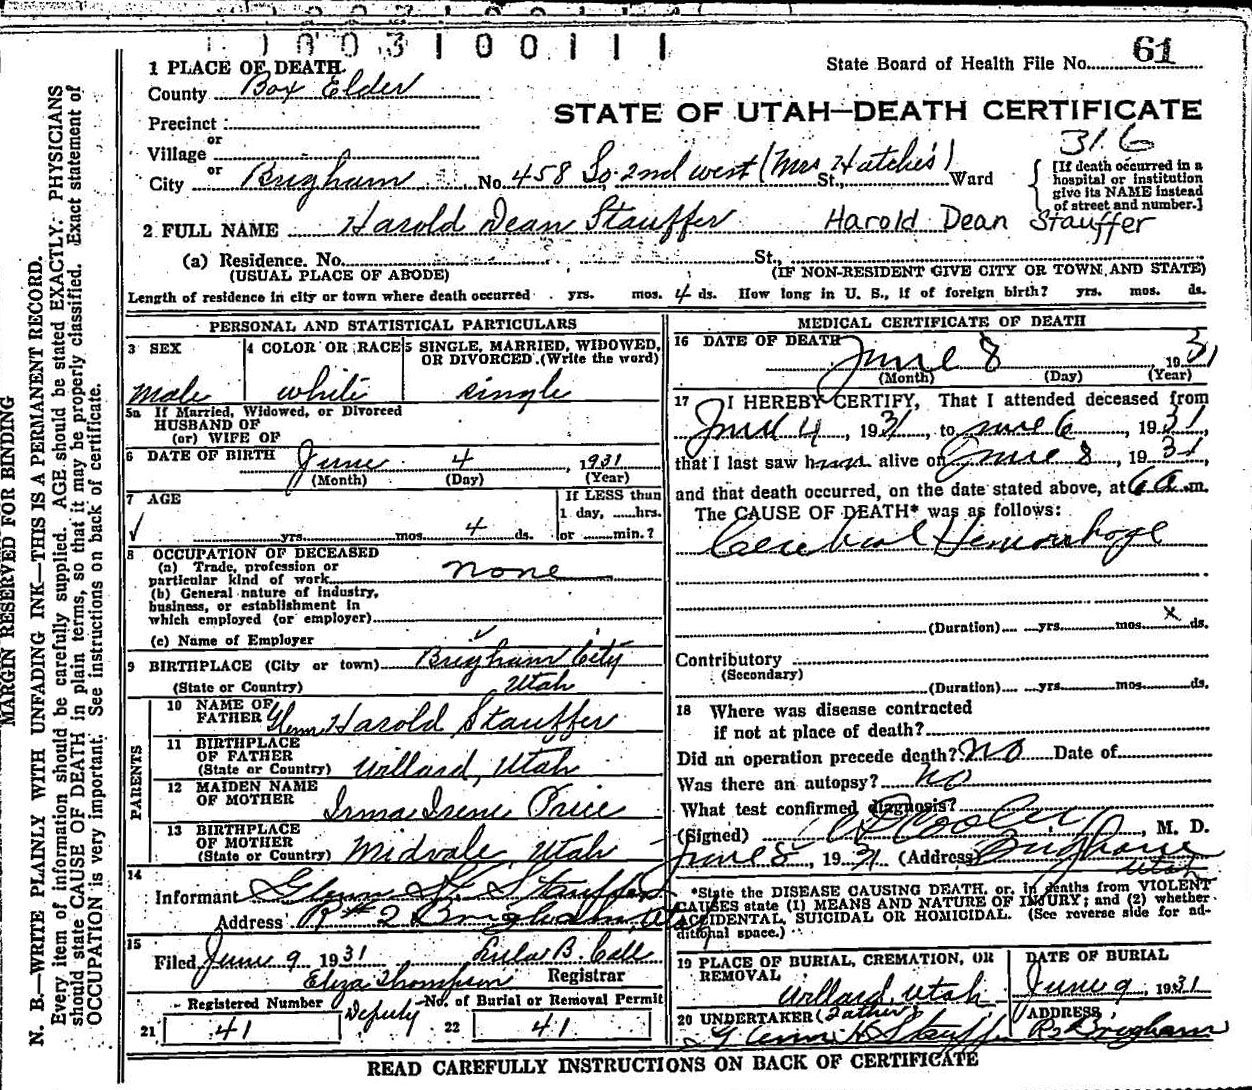 1003100111
61
State Board of Health File No.
1 PLACE OF DEATH
County Box Elder
STATE OF UTAH—DEATH CERTIFICATE
Precinct
or
Village
or
City Brigham No. 458 So 2nd west (Mrs Hatche's) St., Ward
316
[If death occurred in a hospital or institution give its NAME instead of street and number.]
2 FULL NAME Harold Dean Stauffer Harold Dean Stauffer
(a) Residence. No. St.,
(USUAL PLACE OF ABODE) (IF NON-RESIDENT GIVE CITY OR TOWN, AND STATE)
Length of residence in city or town where death occurred yrs. mos. 4 ds. How long in U. S., if of foreign birth? yrs. mos. ds.
PERSONAL AND STATISTICAL PARTICULARS
3 SEX
male
4 COLOR OR RACE
white
5 SINGLE, MARRIED, WIDOWED, OR DIVORCED (Write the word)
single
5a If Married, Widowed, or Divorced
HUSBAND OF
(or) WIFE OF
6 DATE OF BIRTH June 4, 1931
(Month) (Day) (Year)
7 AGE
yrs. mos. 4 ds.
If LESS than
1 day, hrs.
or min.?
8 OCCUPATION OF DECEASED
(a) Trade, profession or
particular kind of work none
(b) General nature of industry,
business, or establishment in
which employed (or employer)
(c) Name of Employer
9 BIRTHPLACE (City or town) Brigham City
(State or Country) Utah
PARENTS
10 NAME OF FATHER Glenn Harold Stauffer
11 BIRTHPLACE OF FATHER
(State or Country) Willard, Utah
12 MAIDEN NAME OF MOTHER Irma Irene Price
13 BIRTHPLACE OF MOTHER
(State or Country) Midvale, Utah
14
Informant Glenn H. Stauffer
Address R#2 Brigham, Utah
15
Filed June 9 1931 Lulu B. Call
Eliza Thompson Registrar
Deputy
Registered Number
21 41
No. of Burial or Removal Permit
22 41
MEDICAL CERTIFICATE OF DEATH
16 DATE OF DEATH
June 8 1931
(Month) (Day) (Year)
17 I HEREBY CERTIFY, That I attended deceased from
June 4, 1931, to June 6, 1931,
that I last saw him alive on June 8, 1931,
and that death occurred, on the date stated above, at 6 a.m.
The CAUSE OF DEATH* was as follows:
Cerebral Hemorrhage
(Duration) yrs. mos. x ds.
Contributory
(Secondary)
(Duration) yrs. mos. ds.
18 Where was disease contracted
if not at place of death?
Did an operation precede death? No Date of
Was there an autopsy? No
What test confirmed diagnosis?
(Signed) , M. D.
June 8 1931 (Address) Brigham
Utah
*State the DISEASE CAUSING DEATH, or, in deaths from VIOLENT
CAUSES state (1) MEANS AND NATURE OF INJURY; and (2) whether
ACCIDENTAL, SUICIDAL OR HOMICIDAL. (See reverse side for ad-
ditional space.)
19 PLACE OF BURIAL, CREMATION, OR
REMOVAL
Willard, Utah
DATE OF BURIAL
June 9, 1931
20 UNDERTAKER (Father)
Glenn H Stauffer
ADDRESS
R2 Brigham
READ CAREFULLY INSTRUCTIONS ON BACK OF CERTIFICATE
MARGIN RESERVED FOR BINDING
N. B.—WRITE PLAINLY WITH UNFADING INK—THIS IS A PERMANENT RECORD.
Every item of information should be carefully supplied. AGE should be stated EXACTLY. PHYSICIANS
should state CAUSE OF DEATH in plain terms, so that it may be properly classified. Exact statement of
OCCUPATION is very important. See instructions on back of certificate.